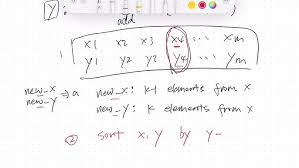 Y:
add
x1 x2 x3 x4 ... xm
y1 y2 y3 y4 ... ym
new_x => a new_x: k-1 elements from x
new_y new_y: k-1 elements from x
② sort x, y by y-